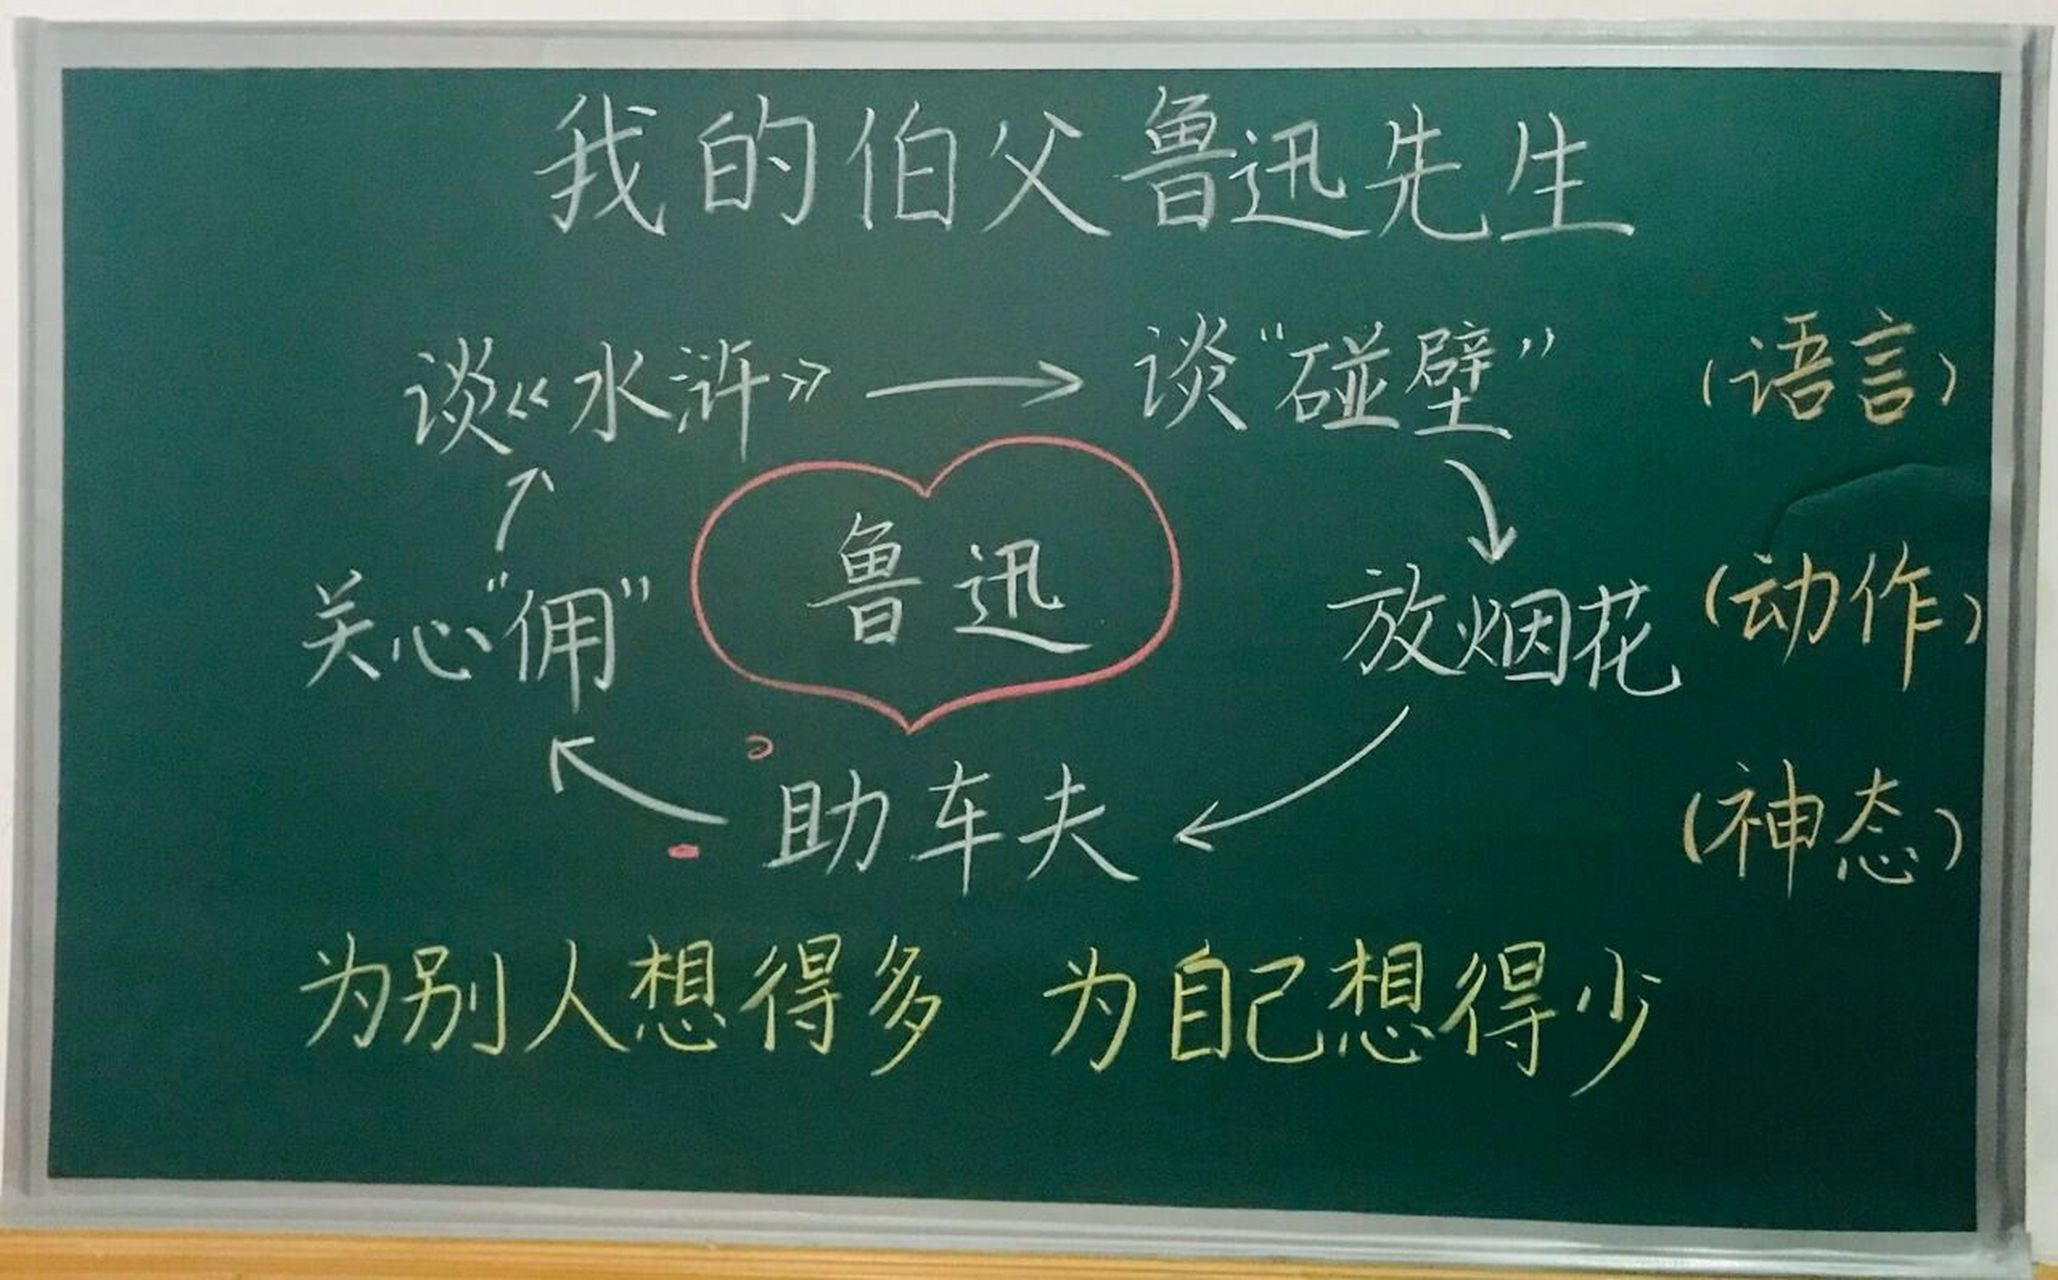 我的伯父鲁迅先生
谈《水浒》 谈“碰壁” (语言)
关心“佣” 鲁迅 放烟花 (动作)
助车夫 (神态)
为别人想得多 为自己想得少